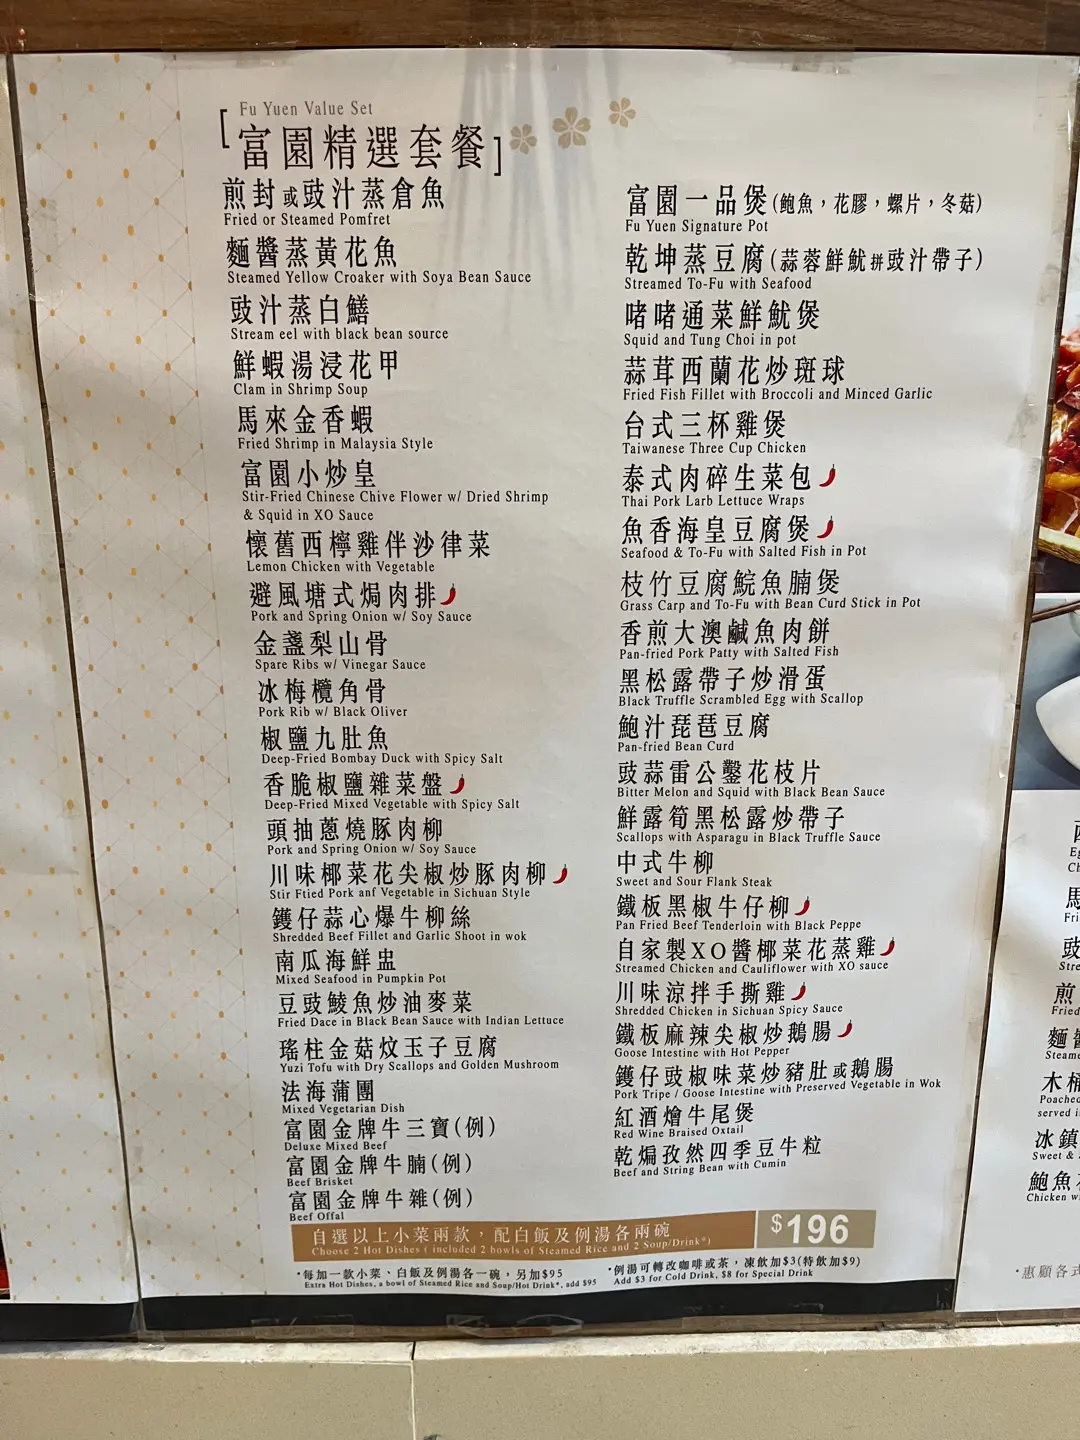 Fu Yuen Value Set
[富園精選套餐]
煎封或豉汁蒸倉魚
Fried or Steamed Pomfret
麵醬蒸黃花魚
Steamed Yellow Croaker with Soya Bean Sauce
豉汁蒸白鱔
Stream eel with black bean source
鮮蝦湯浸花甲
Clam in Shrimp Soup
馬來金香蝦
Fried Shrimp in Malaysia Style
富園小炒皇
Stir-Fried Chinese Chive Flower w/ Dried Shrimp
& Squid in XO Sauce
懷舊西檸雞伴沙律菜
Lemon Chicken with Vegetable
避風塘式焗肉排
Pork and Spring Onion w/ Soy Sauce
金盞梨山骨
Spare Ribs w/ Vinegar Sauce
冰梅欖角骨
Pork Rib w/ Black Oliver
椒鹽九肚魚
Deep-Fried Bombay Duck with Spicy Salt
香脆椒鹽雜菜盤
Deep-Fried Mixed Vegetable with Spicy Salt
頭抽蔥燒豚肉柳
Pork and Spring Onion w/ Soy Sauce
川味椰菜花尖椒炒豚肉柳
Stir Fried Pork anf Vegetable in Sichuan Style
鑊仔蒜心爆牛柳絲
Shredded Beef Fillet and Garlic Shoot in wok
南瓜海鮮盅
Mixed Seafood in Pumpkin Pot
豆豉鯪魚炒油麥菜
Fried Dace in Black Bean Sauce with Indian Lettuce
瑤柱金菇炆玉子豆腐
Yuzi Tofu with Dry Scallops and Golden Mushroom
法海蒲團
Mixed Vegetarian Dish
富園金牌牛三寶(例)
Deluxe Mixed Beef
富園金牌牛腩(例)
Beef Brisket
富園金牌牛雜(例)
Beef Offal
富園一品煲(鮑魚，花膠，螺片，冬菇)
Fu Yuen Signature Pot
乾坤蒸豆腐(蒜蓉鮮魷拼豉汁帶子)
Streamed To-Fu with Seafood
啫啫通菜鮮魷煲
Squid and Tung Choi in pot
蒜茸西蘭花炒斑球
Fried Fish Fillet with Broccoli and Minced Garlic
台式三杯雞煲
Taiwanese Three Cup Chicken
泰式肉碎生菜包
Thai Pork Larb Lettuce Wraps
魚香海皇豆腐煲
Seafood & To-Fu with Salted Fish in Pot
枝竹豆腐鯇魚腩煲
Grass Carp and To-Fu with Bean Curd Stick in Pot
香煎大澳鹹魚肉餅
Pan-fried Pork Patty with Salted Fish
黑松露帶子炒滑蛋
Black Truffle Scrambled Egg with Scallop
鮑汁琵琶豆腐
Pan-fried Bean Curd
豉蒜雷公鑿花枝片
Bitter Melon and Squid with Black Bean Sauce
鮮露筍黑松露炒帶子
Scallops with Asparagu in Black Truffle Sauce
中式牛柳
Sweet and Sour Flank Steak
鐵板黑椒牛仔柳
Pan Fried Beef Tenderloin with Black Peppe
自家製XO醬椰菜花蒸雞
Streamed Chicken and Cauliflower with XO sauce
川味涼拌手撕雞
Shredded Chicken in Sichuan Spicy Sauce
鐵板麻辣尖椒炒鵝腸
Goose Intestine with Hot Pepper
鑊仔豉椒味菜炒豬肚或鵝腸
Pork Tripe / Goose Intestine with Preserved Vegetable in Wok
紅酒燴牛尾煲
Red Wine Braised Oxtail
乾煸孜然四季豆牛粒
Beef and String Bean with Cumin
自選以上小菜兩款，配白飯及例湯各兩碗
Choose 2 Hot Dishes ( included 2 bowls of Steamed Rice and 2 Soup/Drink*)
$196
*每加一款小菜、白飯及例湯各一碗，另加$95
Extra Hot Dishes, a bowl of Steamed Rice and Soup/Hot Drink*, add $95
*例湯可轉改咖啡或茶，凍飲加$3(特飲加$9)
Add $3 for Cold Drink, $8 for Special Drink
馬
Fri
豉
Stre
煎
Fried
麵醬
Steame
木桶
Poached
served i
冰鎮
Sweet &
鮑魚
Chicken w
*惠顧各式